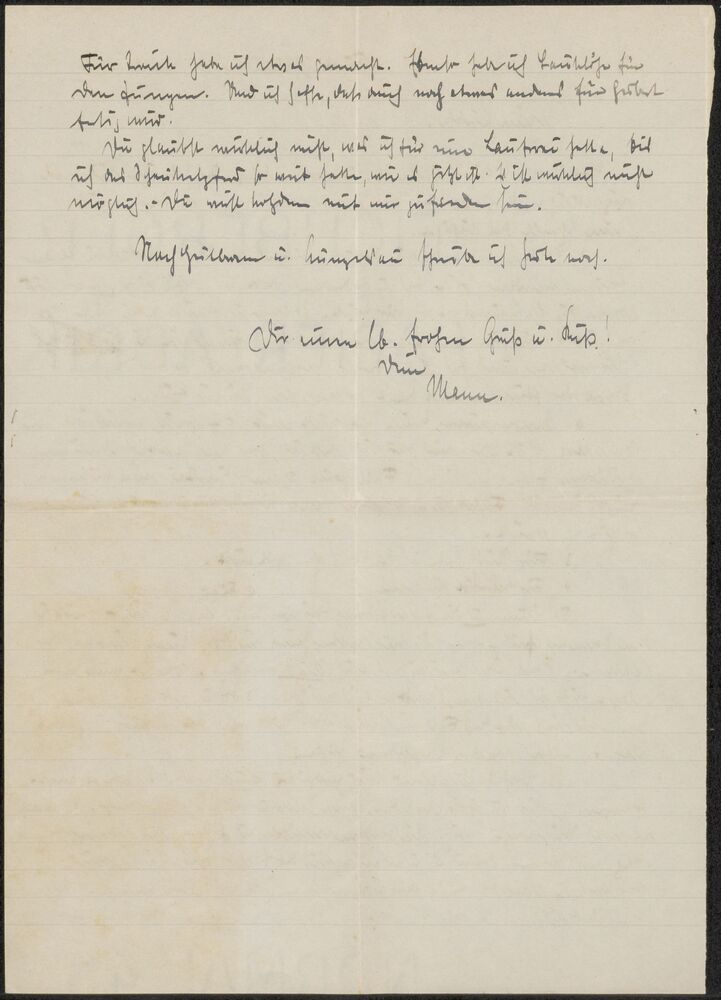 Für Traute habe ich etwas gemacht. Ebenso habe ich Bauklötze für
den Jungen. Und ich hoffe, daß auch noch etwas anderes für Herbert
fertig wird.
Du glaubst wirklich nicht, was ich für eine Lauferei hatte, bis
ich das Schaukelpferd so weit hatte, wie es jetzt ist. Es ist wirklich nicht
möglich. - Du mußt trotzdem mit mir zufrieden sein.
Nach Heilbronn u. Künzelsau schreibe ich heute noch.
Dir einen lb. frohen Gruß u. Kuß!
Dein
Mann.